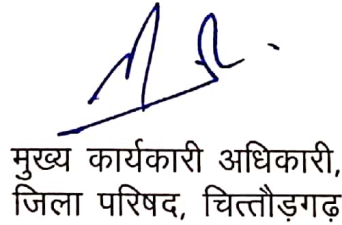 मुख्य कार्यकारी अधिकारी,
जिला परिषद, चित्तौड़गढ़